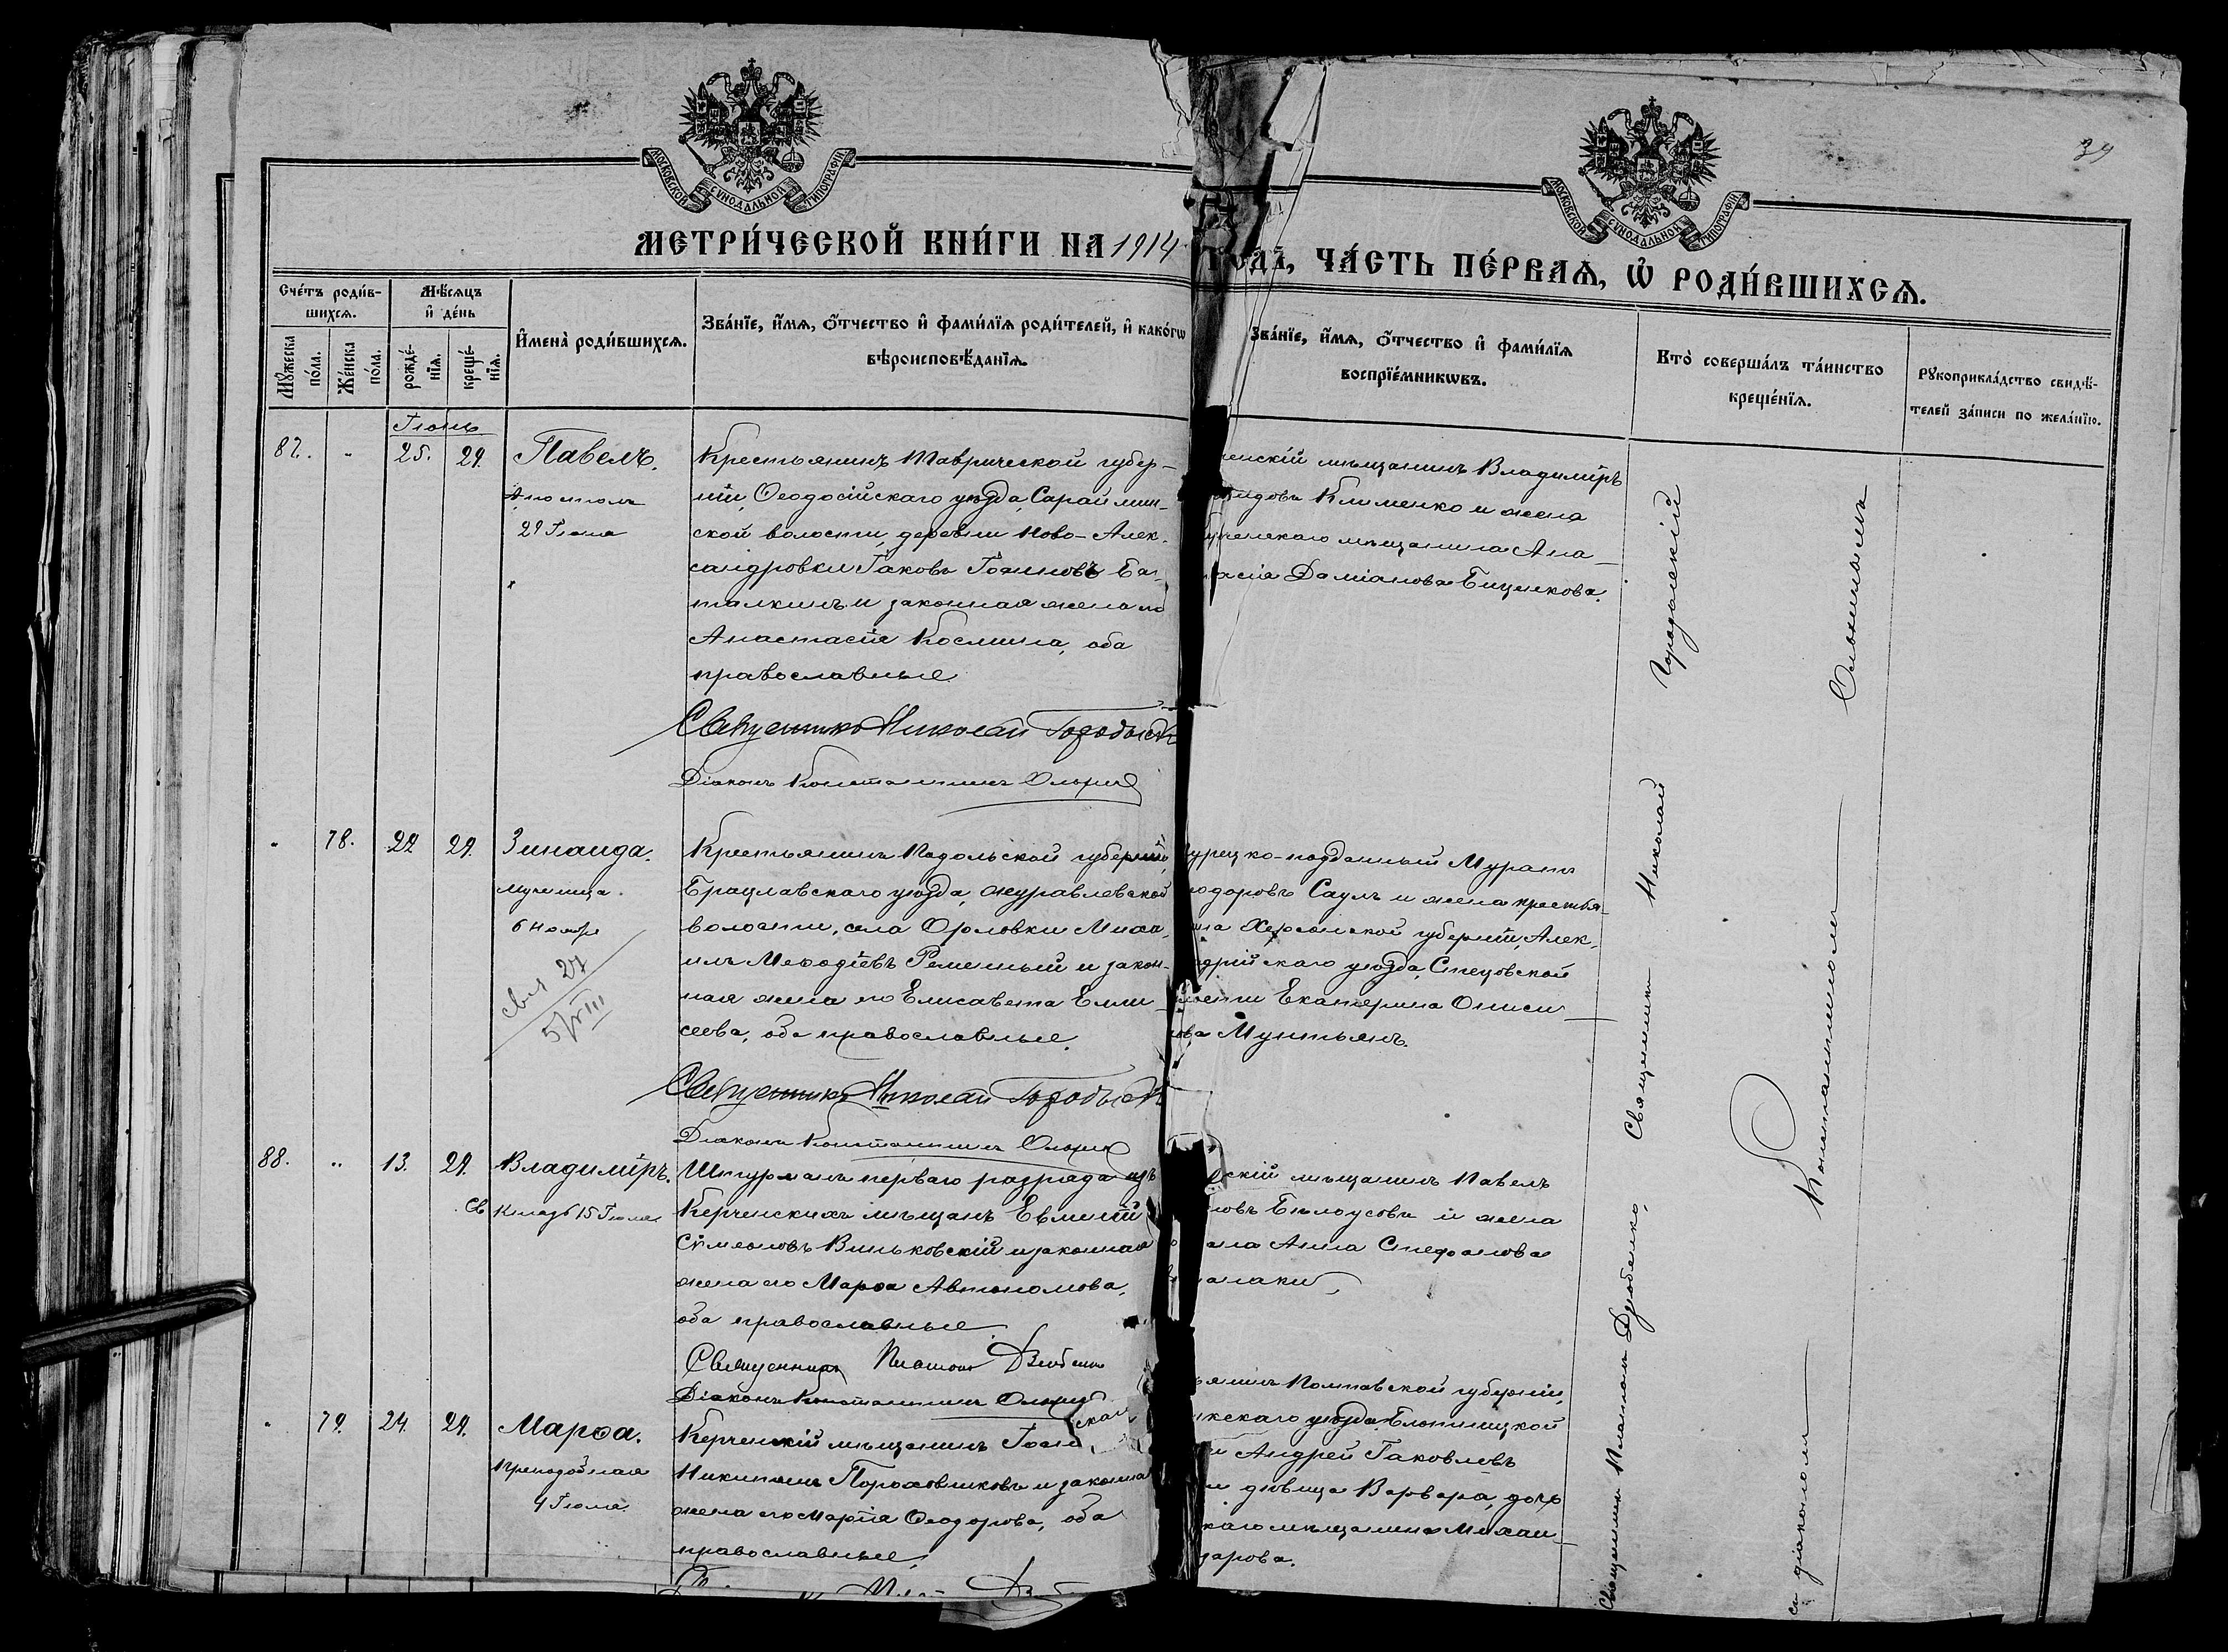 МОСКОВСКОЙ СѴНОДАЛЬНОЙ ТИПОГРАФІИ
МОСКОВСКОЙ СѴНОДАЛЬНОЙ ТИПОГРАФІИ
39
МЕТРИ́ЧЕСКОЙ КНИ́ГИ НА 1914
ГОДЪ, ЧА́СТЬ ПЕ́РВАѦ, Ѡ҆ РОДИ́ВШИХСѦ.
Сче́тъ роди́в-
шихсѧ.
Мꙋ́жеска по́ла.
Же́нска по́ла.
Мѣ́сѧцъ и҆ де́нь
рожде́-нїѧ.
креще́-нїѧ.
И҆мена̀ роди́вшихсѧ.
Зва́нїе, и҆́мѧ, ѻ҆́тчество и҆ фами́лїѧ роди́телей, и҆ како́гѡ
вѣроисповѣ́данїѧ.
Зва́нїе, и҆́мѧ, ѻ҆́тчество и҆ фами́лїѧ
воспрїе́мникѡвъ.
Кто̀ соверша́лъ та́инство
креще́нїѧ.
Рꙋкоприкла́дство свидѣ́-
телей за́писи по жела́нїю.
Іюнь
87. " 25. 29. Павелъ.
Апостолъ
29 Іюня
Крестьянинъ Таврической губер-
ніи, Ѳеодосійскаго уѣзда, Сараймин-
ской волости, деревни Ново-Алек-
сандровки Іаковъ Іоанновъ Ба-
талкинъ и законная жена его
Анастасія Космина, оба
православные
Священникъ Николай Городыскій
Діаконъ Константинъ
ченскій мѣщанинъ Владиміръ
Клименко и жена
ченскаго мѣщанина Ана-
стасія Даміанова
" 78. 22 29. Зинаида.
Мученица.
6 Ноябр
27
5/VIII
Крестьянинъ Подольской губерніи,
Брацлавскаго уѣзда, Журавлевской
волости, села Орловки Миха-
илъ Меѳодіевъ Ременный и закон-
ная жена его Елисавета Ели-
сеева, оба православные.
Священникъ Николай Городыскій
Діаконъ Константинъ
урецко-подданный Муратъ
одоровъ Саулъ и жена крестья-
нина Херсонской губерніи, Алек-
андрійскаго уѣзда, Стецовской
лости ЕкатеринаОниси-
ова Мунтьянъ.
88. " 13. 29. Владиміръ.
Св Князь 15 Іюля
Штурманъ перваго разряда изъ
Керченскихъ мѣщанъ Евѳимій
Симеоновъ Виньковскій и законная
жена его Марѳа Автономова,
оба православные
Священникъ Платонъ Дзюбенко
Діаконъ Константинъ
скій мѣщанинъ Павелъ
овъ Бѣлоусовъ и жена
Анна Стефанова
" 79. 24. 29. Марѳа.
Преподобная
4 Іюля
Керченскій мѣщанинъ Іоан
Никитинъ Пороховниковъ и законна
жена его Марія Ѳеодорова, оба
православные.
янинъ Полтавской губерніи,
скаго уѣзда,
и Андрей Іаковлевъ
и дѣвица Варвара, дочь
каго мѣщанина Михаи-
зарова.
Священникъ Платонъ Дзюбенко, Священникъ Николай Городыскій
съ діакономъ Константиномъ